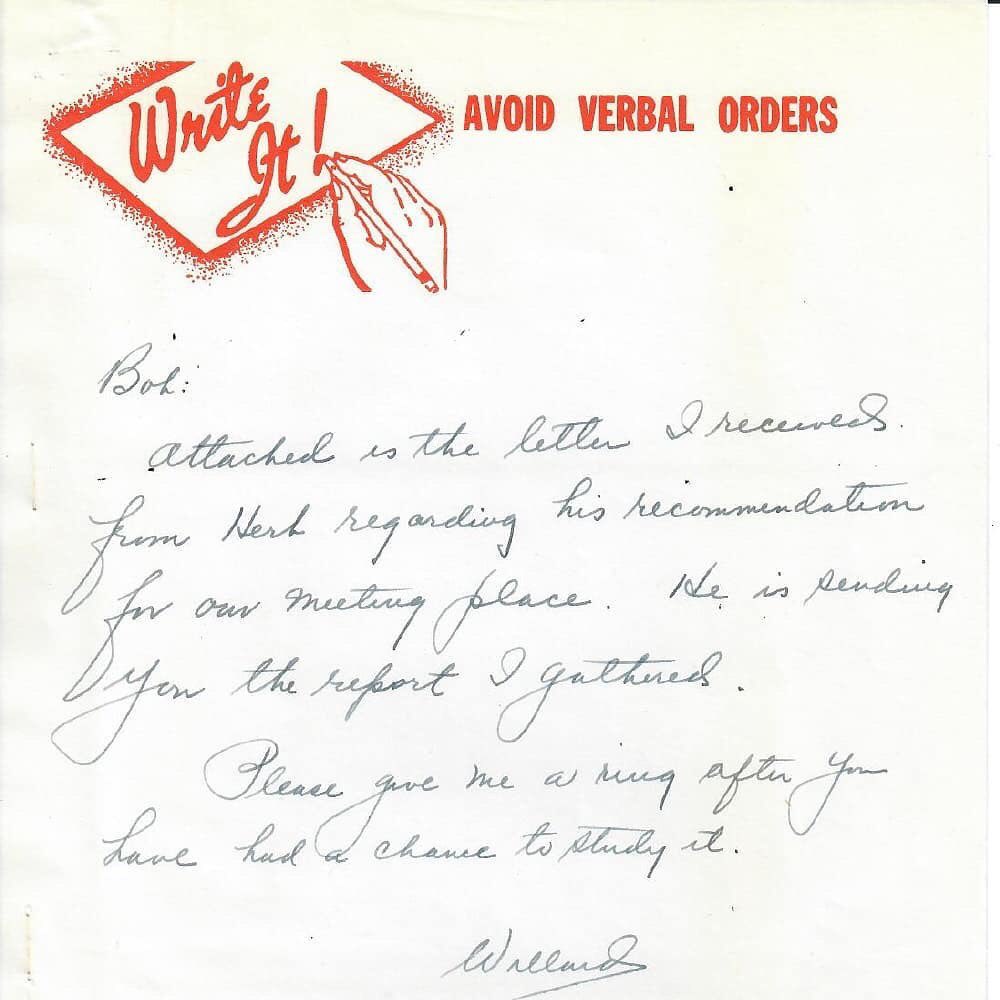 Write
It!
AVOID VERBAL ORDERS
Bob:
Attached is the letter I received
from Herb regarding his recommendation
for our meeting place. He is sending
you the report I gathered.
Please give me a ring after you
have had a chance to study it.
Willard